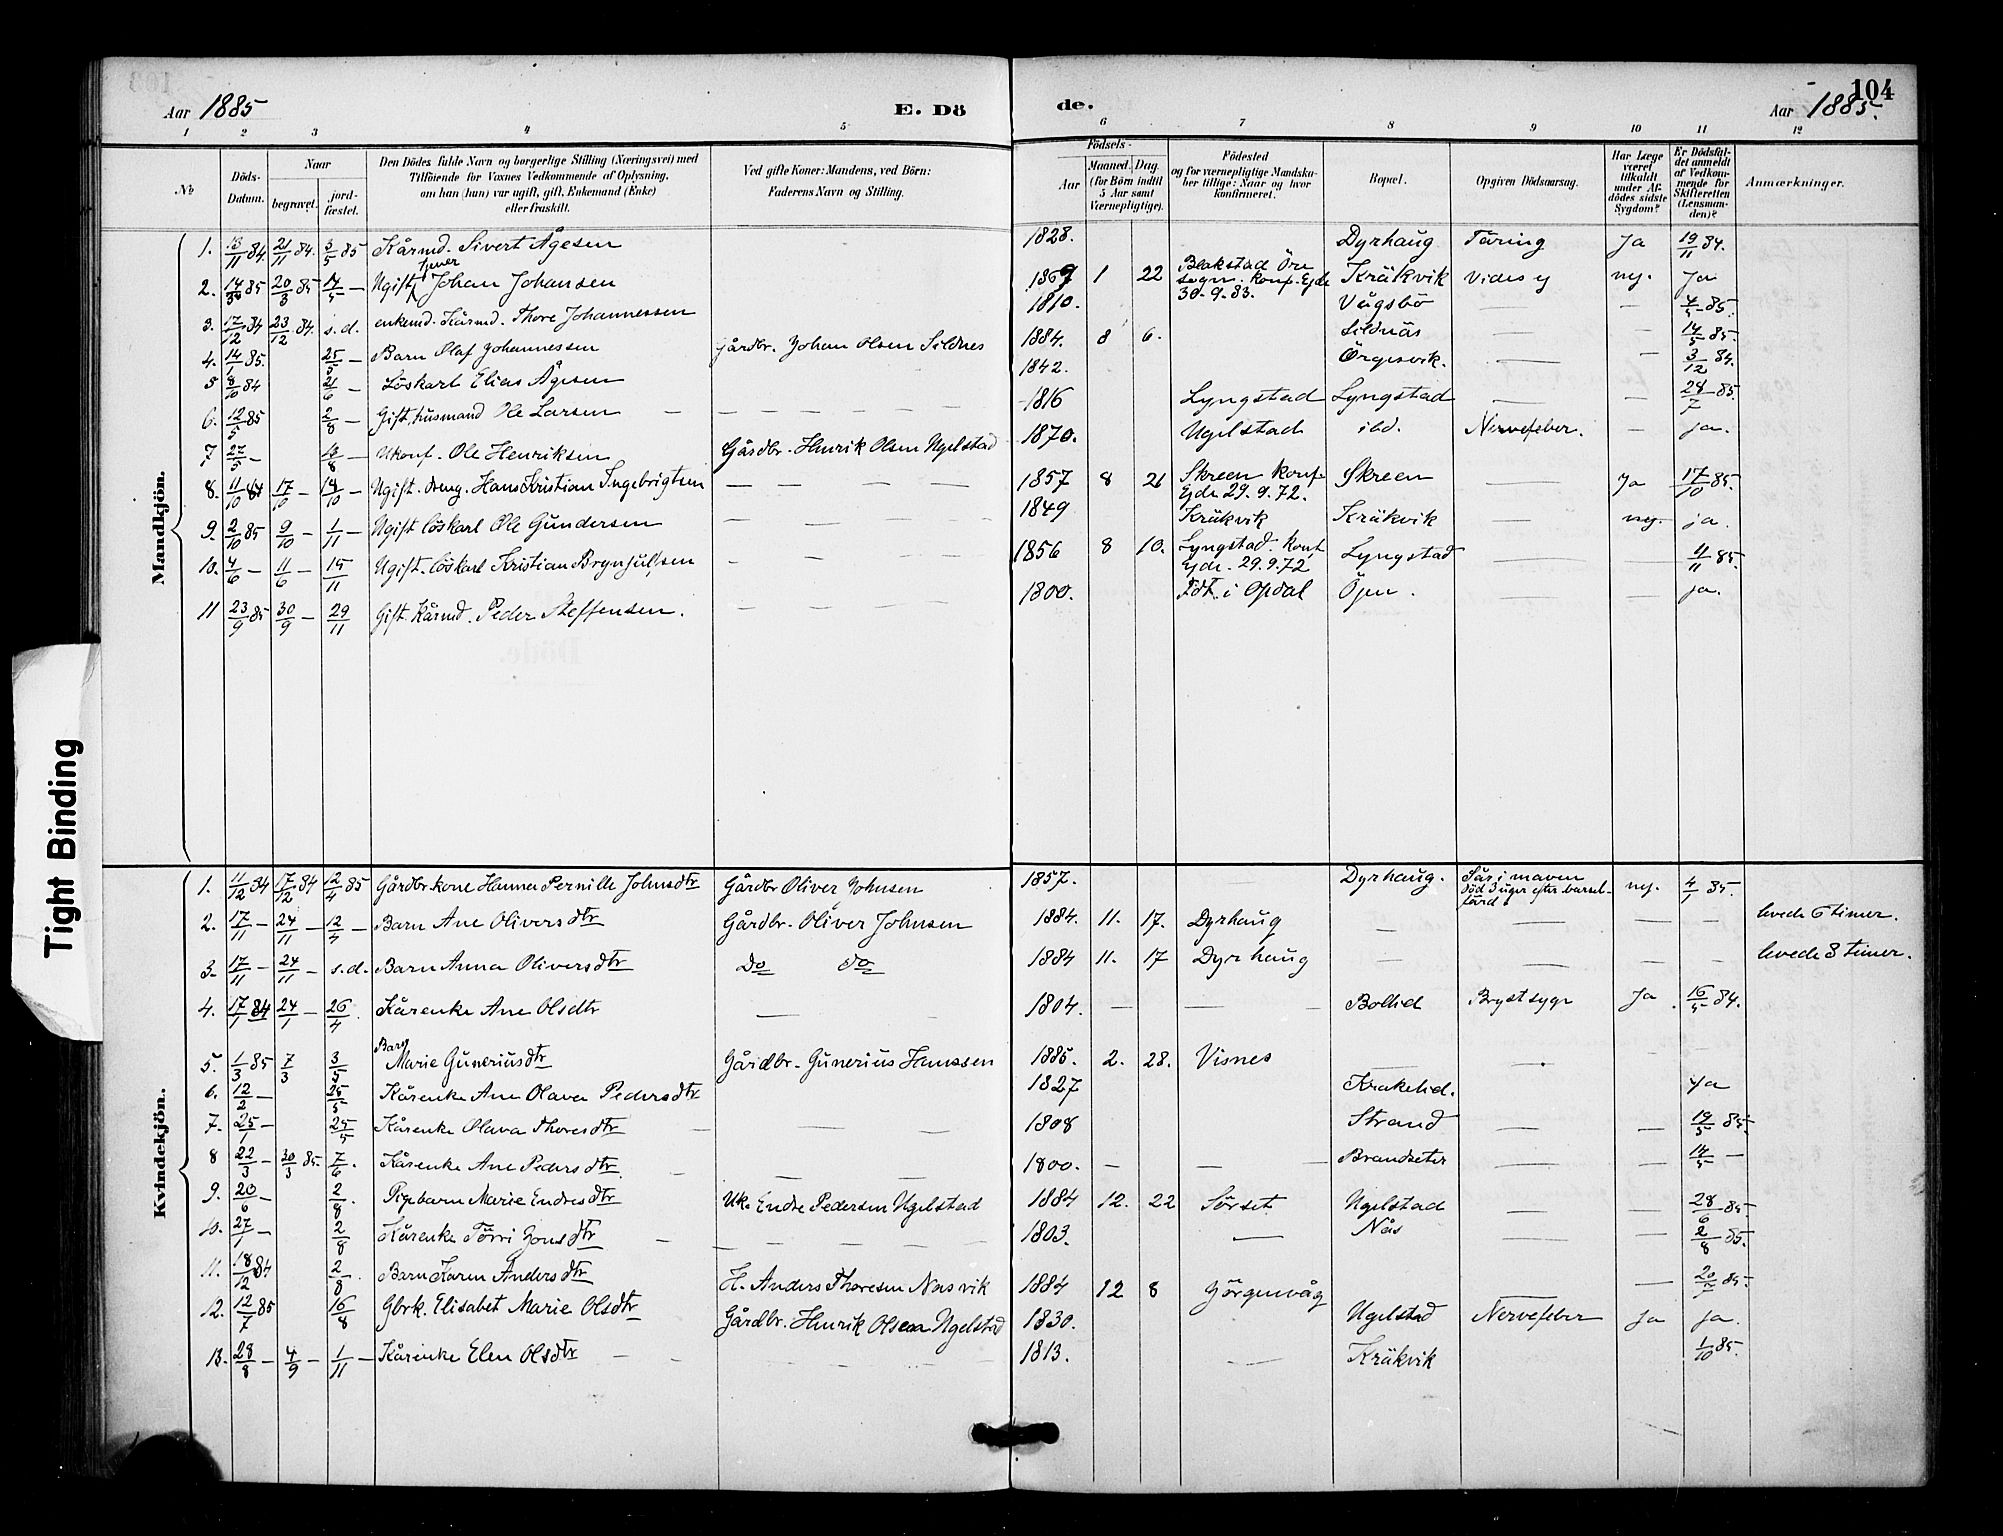 104
Aar 1885
E. Döde.
Aar 1885.
1 2 3 4 5 6 7 8 9 10 11 12
No
Döds-Datum.
Naar
begravet.
jordfæstet.
Den Dödes fulde Navn og borgerlige Stilling (Næringsvei) med
Tilföiende for Voxnes Vedkommende af Oplysning,
om han (hun) var ugift, gift, Enkemand (Enke)
eller fraskilt.
Ved gifte Koner: Mandens, ved Börn:
Faderens Navn og Stilling.
Födsels-
Aar
Maaned. Dag.
(for Börn indtil
5 Aar samt
Værnepligtige).
Födested
og for værnepligtige Mandska-
ber tillige: Naar og hvor
konfirmeret.
Bopæl.
Opgiven Dödsaarsag.
Har Læge
været
tilkaldt
under Af-
dödes sidste
Sygdom?
Er Dödsfal-
det anmeldt
af Vedkom-
mende for
Skifteretten
(Lensman-
den)?
Anmærkninger.
Mandkjön.
1. 13/11 84 21/11 84. 3/5 85 Kårmd. Sivert Ågesen 1828. Dyrhaug Täring Ja 19/11 84.
2. 85 20/3 85 14/5 — Ugift Johan Johansen 1869 1 22 Blakstad Öre sogn. konf. Ejde 30-9-83. Kräkvik ny. Ja
3. 17/12 84 23/12 84. s.d. enkemd. Kårmd. Thore Johannessen 1810. Vågsbö — 4/5 85.
4. 14/1 85. 25/5 — Barn Olaf Johannessen Gårdbr. Johan Olsen Sildnes 1884. 8 6. Sildnäs 14/5 85.
5 8/10 84 21/6 — Löskarl Elias Ågesen 1842. Örgesvik. — 3/12 84.
6. 12/5 85 2/8 — Gift. husmand Ole Larsen 1816 Lyngstad Lyngstad — 28/7 85.
7. 27/5 — 16/8 — Ukonf. Ole Henriksen Gårdbr. Henrik Olsen Ugelstad 1870. Ugelstad ibd. Nervefeber. — ja.
8. 11/10 84 17/10 — 18/10 — Ugift. dreng. Hans Kristian Ingebrigtsen 1857 8 21 Skreen konf. Ejde 29.9.72. Skreen — Ja 17/10 85.
9. 2/10 85 9/10 — 1/11 — Ugift löskarl Ole Gundersen 1849 Kräkvik Kräkvik — ny. ja.
10. 4/6 — 11/6 — 15/11 Ugift. löskarl Kristian Brynjulfsen 1856 8 10. Lyngstad. konf. Ejde. 29.9.72 Lyngstad — — 11/11 85.
11 23/9 85 30/9 — 29/11 Gift. Kårmd. Peder Steffensen. 1800. Födt i Opdal Öjen. — — ja.
Kvindekjön.
1. 11/12 84 17/12 84 2/4 85 Gårdbr. kone Hanna Pernille Johnsdtr Gårdbr Oliver Johnsen 1857. Dyrhaug. Sår i maven död 3 uger efter barsel- färd ny. 4/1 85.
2. 17/11 — 24/11 — 12/4 — Barn Ane Oliversdtr Gårdbr. Oliver Johnsen 1884. 11. 17. Dyrhaug — — — — levede 6 timer.
3. 17/11 — 24/11 — s.d. Barn Anna Oliversdtr Do do 1884 11. 17 Dyrhaug — — — — levede 8 timer.
4. 17/1 84 24/1 — 26/4 Kårenke Ane Olsdtr — 1804. — — Bollid Brystsyge Ja 16/5 84.
5. 1/3 85 7/3 3/5 Barn Marie Guneriusdtr Gårdbr. Gunerius Hanssen 1885. 2. 28. Visnes — —
6. 12/2 — 25/5 Kårenke Ane Olava Pedersdtr 1827 Krakelid. Ja
7. 25/1 — 25/5 Kårenke Olava Thoresdtr — 1808 Strand — — 19/5 85.
8 22/3 — 30/3 85. 7/6. Kårenke Ane Pedersdtr. — 1800. — — Brandseter — — 14/5 —
9. 20/6 — 2/8. Pigebarn Marie Endresdtr Uk. Endre Pedersen Ugelstad 1884 12. 22 Sörset Ugelstad — — 28/6 85.
10. 27/1 — 2/8 Kårenke Jonsdtr — 1803. — Nås — — 2/8 85.
11. 18/12 84 2/8. Barn Karen Andersdtr H. Anders Thoresen Nasvik 1884 12 8 Görgenvåg — — 20/7 85.
12. 12/7 85 16/8 Gbrk. Elisabet Marie Olsdtr Gårdbr. Henrik Olsen Ugelstad 1830. Ugelstad Nervefeber Ja Ja.
13. 28/8 — 4/9 — 1/11 — Kårenke Elen Olsdtr — 1813. — Kräkvik 1/10 85.
Tight Binding